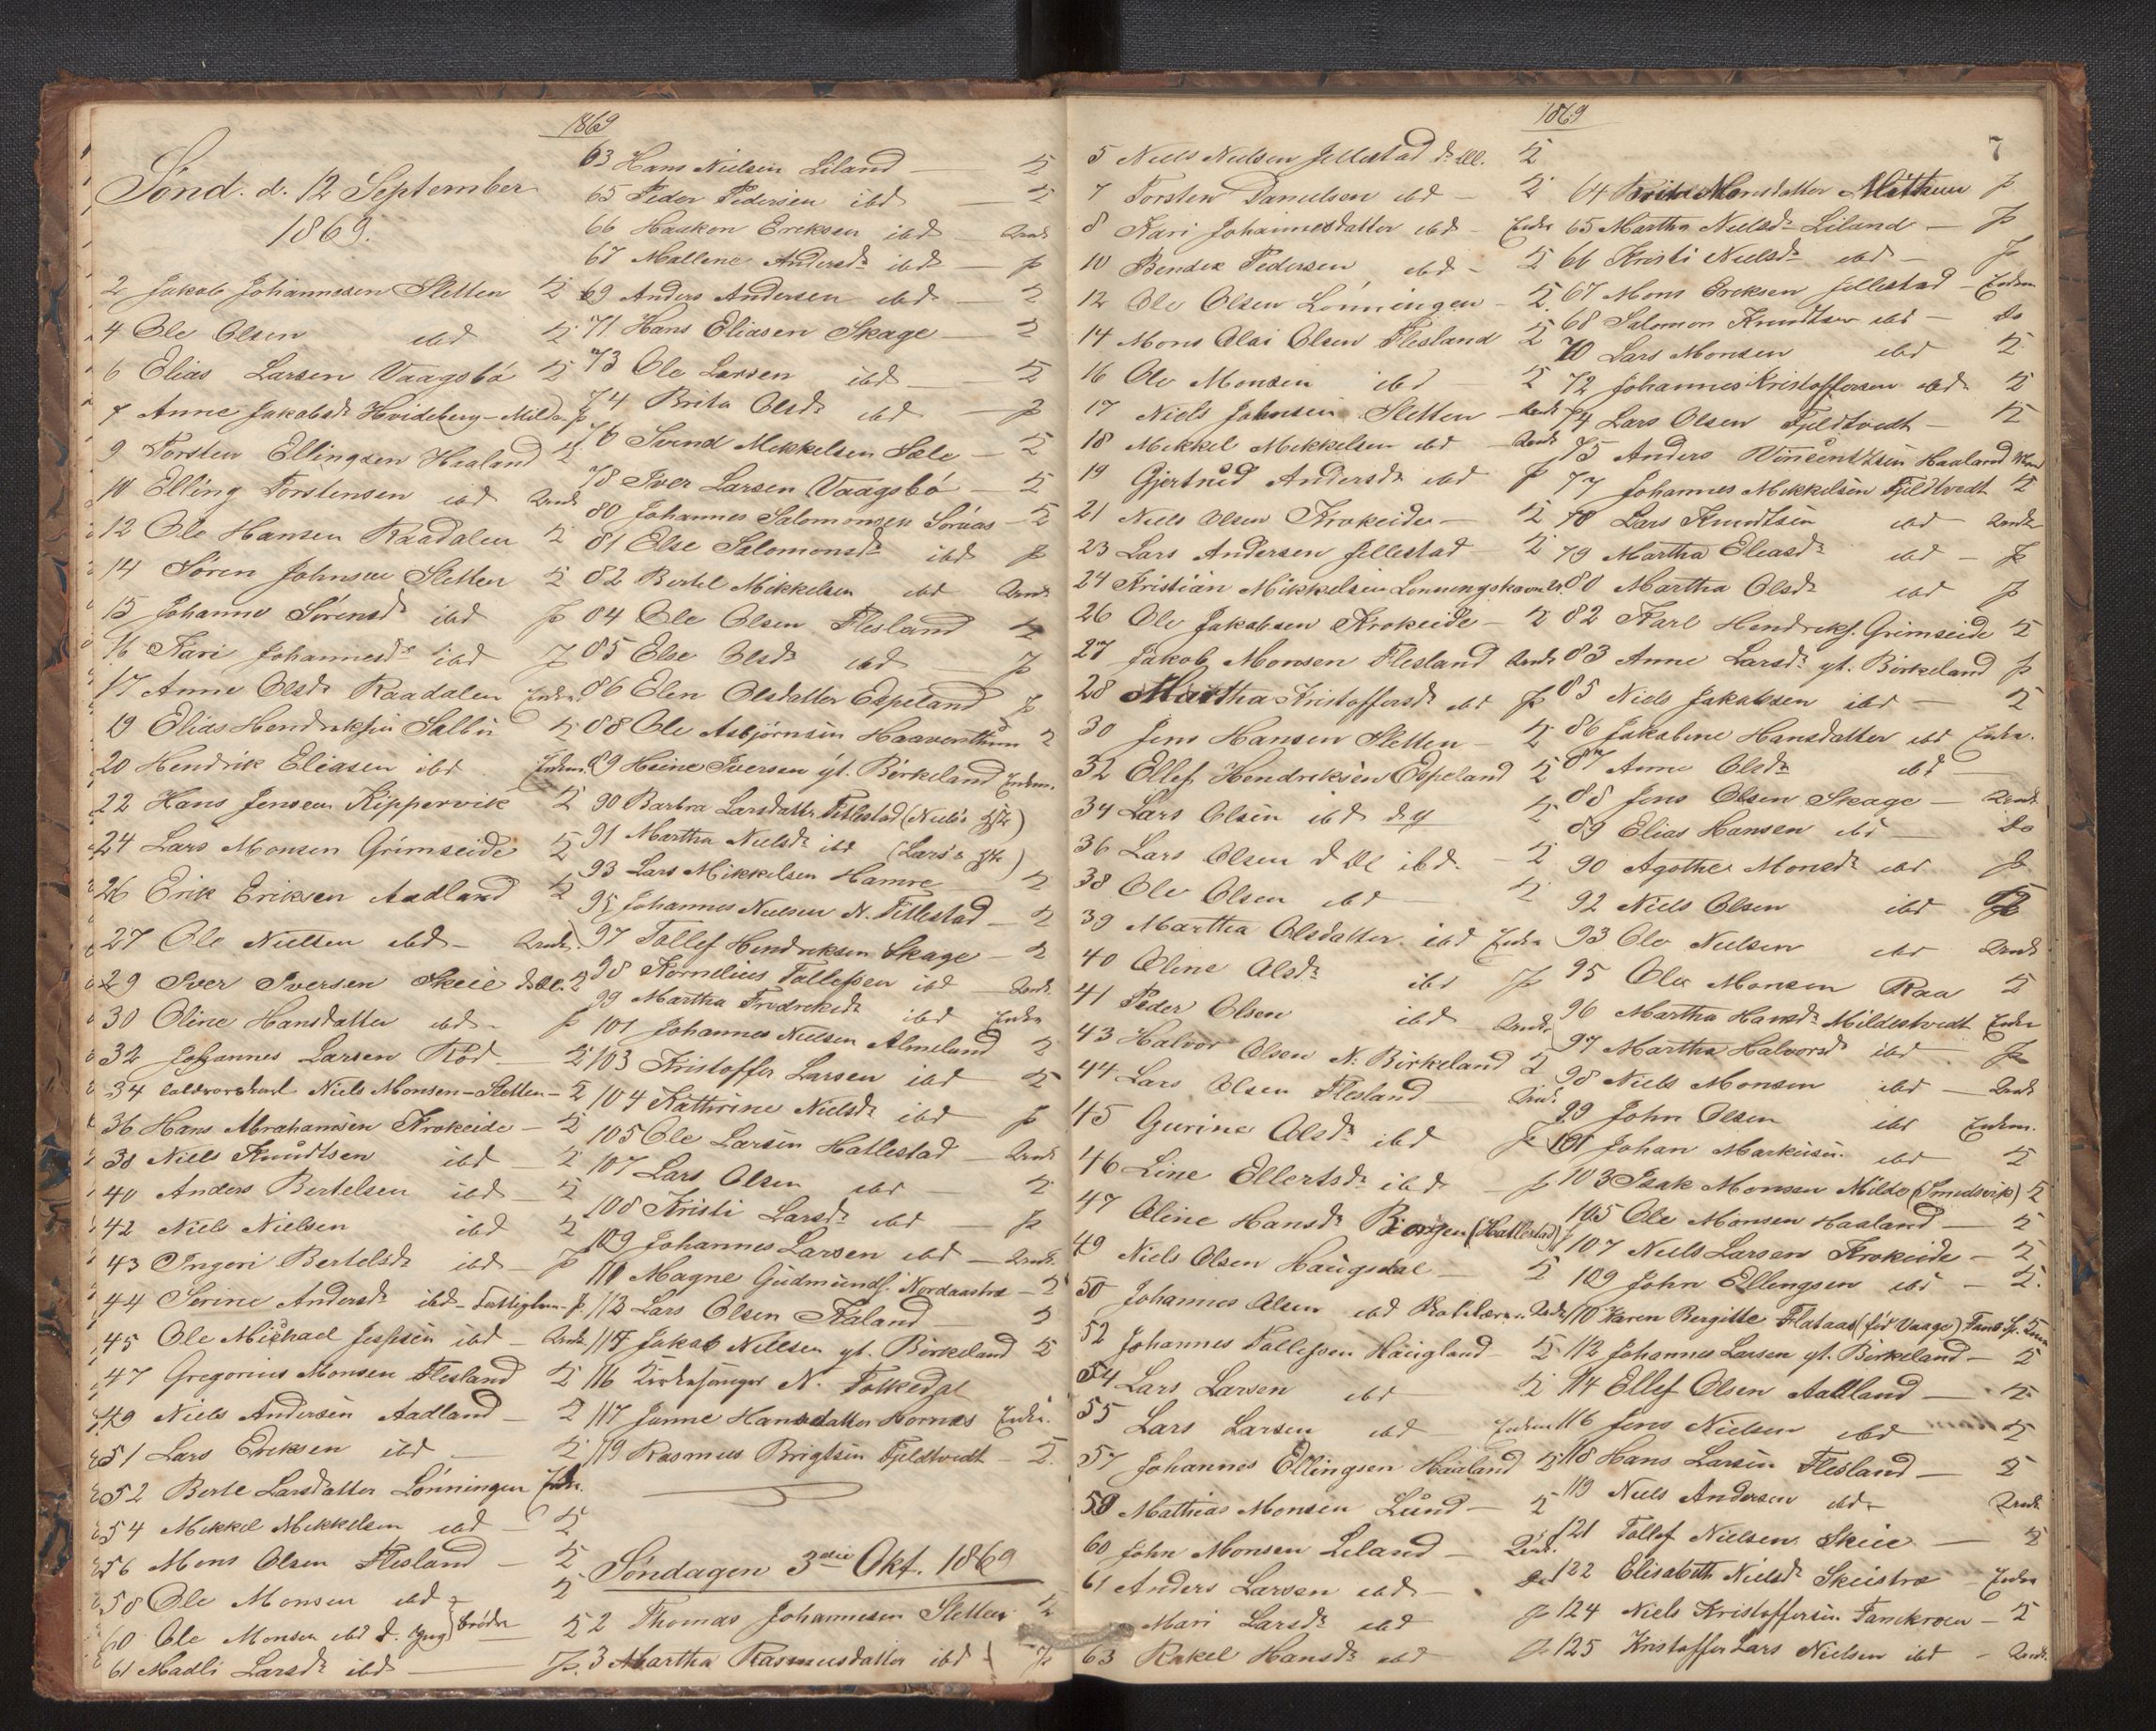 1869
Sønd. d. 12 September
1869.
2 Jakob Johannesen Sletten 2
4 Ole Olsen ibd 2
6 Elias Larsen Vaagsbø 2
7 Anne Jakobsdr Hvideberg-Milde p
9 Torsten Ellingsen Haaland 2
10 Elling Torstensen ibd Drnk
12 Ole Hansen Raadalen 2
14 Søren Johnsen Sletten 2
15 Johanne Sørensdr ibd p
16 Kari Johannesdr ibd p
17 Anne Olsdr Raadalen Enke
19 Elias Hendriksen Salbu 2
20 Hendrik Eliasen ibd Enkem.
22 Hans Jensen Kippervik 2
24 Lars Monsen Grimseide 2
26 Erik Eriksen Aadland 2
27 Ole Nielsen ibd Drnk.
29 Iver Iversen Skeie d. Æl. 2
30 Oline Hansdatter ibd p
32 Johannes Larsen Rød 2
34 Niels Monsen-Sletten 2
36 Hans Abrahamsen Krokeide 2
38 Niels Knudtsen ibd 2
40 Anders Bertelsen ibd 2
42 Niels Nielsen ibd 2
43 Ingeri Bertelsdr ibd p
44 Serine Andersdr ibd p.
45 Ole Michael Jespsen ibd Drnk
47 Gregorius Monsen Flesland 2
49 Niels Andersen Aadland 2
51 Lars Eriksen ibd 2
52 Berte Larsdatter Lønningen Enke.
54 Mikkel Mikkelsen ibd 2
56 Mons Olsen Flesland 2
58 Ole Monsen ibd 2
60 Ole Monsen ibd d. yng. brødre 2
61 Madli Larsdr ibd p.
63 Hans Nielsen Liland 2
65 Peder Pedersen ibd 2
66 Haakon Eriksen ibd Drnk
67 Mallene Andersdr ibd p
69 Anders Andersen ibd 2
71 Hans Eliasen Skage 2
73 Ole Larsen ibd 2
74 Brita Olsdr ibd p
76 Svend Mikkelsen Sæle 2
78 Iver Larsen Vaagsbø 2
80 Johannes Salomonsen Søraas 2
81 Else Salomonsdr ibd p
82 Bertel Mikkelsen ibd Drnk
84 Ole Olsen Flesland 2
85 Else Olsdr ibd p
86 Elen Olsdatter Espeland p
88 Ole Asbjørnsen Haaventhun 2
89 Heine Iversen yt. Birkeland Enkem.
90 Barbra Larsdatter Titlestad (Niels's )
91 Martha Nielsdr ibd (Lars's )
93 Lars Mikkelsen Hamre 2
95 Johannes Nielsen N. Titlestad 2
97 Tollef Hendriksen Skage 2
98 Kornelius Tollefsen ibd Drnk.
99 Martha Fredriksdr ibd Enke
101 Johannes Nielsen Almeland 2
103 Kristoffer Larsen ibd 2
104 Kathrine Nielsdr ibd p
105 Ole Larsen Hatlestad Drnk
107 Lars Olsen ibd 2
108 Kristi Larsdr ibd p
109 Johannes Larsen ibd Drnk.
111 Magne Gudmunds. Nordaastræ 2
113 Lars Olsen Kaland 2
115 Jakob Nielsen yt. Birkeland 2
116 Kirkesanger N. Tolkedal
117 Janne Hansdatter Hornes Enke.
119 Rasmus Brigtsen Fjeldtvedt 2.
Søndagen 3die Okt. 1869
2 Thomas Johannesen Sletten 2
3 Martha Rasmusdatter ibd p
1869
7
5 Niels Nielsen Jellestad d. Æl. 2
7 Torsten Danielsen ibd 2
8 Kari Johannesdatter ibd Enke
10 Bendix Pedersen ibd 2
12 Ole Olsen Lønningen 2
14 Mons Olai Olsen Flesland 2
16 Ole Monsen ibd 2
17 Niels Johnsen Sletten Drnk
18 Mikkel Mikkelsen ibd Drnk
19 Gjertrud Andersdr ibd p
21 Niels Olsen Krokeide 2
23 Lars Andersen Jellestad 2
24 Kristian Mikkelsen Lønningshavn
26 Ole Jakobsen Krokeide 2
27 Jakob Monsen Flesland Drnk
28 Martha Kristoffersdr ibd p
30 Jens Hansen Sletten 2
32 Ellef Hendriksen Espeland 2
34 Lars Olsen ibd d. y 2
36 Lars Olsen d Æl ibd 2
38 Ole Olsen ibd 2
39 Martha Olsdatter ibd Enke
40 Oline Olsdr ibd p
41 Peder Olsen ibd Drnk
43 Halvor Olsen N. Birkeland 2
44 Lars Olsen Flesland Drnk.
45 Gurine Olsdr ibd p
46 Line Ellertsdr ibd p
47 Oline Hansdr Bergen (Hatlestad) p
49 Niels Olsen Haugsdal 2
50 Johannes Olsen ibd Drnk
52 Johannes Tollefsen Haugland 2
54 Lars Larsen ibd 2
55 Lars Larsen ibd Enkem
57 Johannes Ellingsen Haaland 2
59 Mathias Monsen Lund 2
60 John Monsen Leland Drnk.
61 Anders Larsen ibd do
Mari Larsdr ibd p
63 Rakel Hansdr ibd p
64 Brita Monsdatter Mathuu p
65 Martha Nielsdr Liland p
66 Kristi Nielsdr ibd p
67 Mons Eriksen Jellestad Enkem
68 Salomon Knudtsen ibd do
70 Lars Monsen ibd 2
72 Johannes Kristoffersen ibd 2
74 Lars Olsen Fjeldtvedt 2
75 Anders Vincentzsen Haaland
77 Johannes Mikkelsen Fjeldtvedt 2
78 Lars Knudtsen ibd Drnk
79 Martha Eliasdr ibd p
80 Martha Olsdr ibd p
82 Karl Hendriks. Grimseide 2
83 Anne Larsdr yt. Birkeland p
85 Niels Jakobsen ibd 2
86 Jakobine Hansdatter ibd Enke.
87 Anne Olsdr ibd
88 Jens Olsen Skage Drnk
89 Elias Hansen ibd do
90 Agothe Monsdr ibd p
92 Niels Olsen ibd 2
93 Ole Nielsen ibd Drnk
95 Ole Monsen Raa 2
96 Martha Hansdr Mildestvedt Enke
97 Martha Halvorsdr ibd p
98 Niels Monsen ibd Drnk
99 John Olsen ibd Enkem.
101 Johan Markusen ibd 2
103 Isak Monsen Milde (Smedsvik) 2
105 Ole Monsen Haaland 2
107 Niels Larsen Krokeide 2
109 John Ellingsen ibd 2.
110 Karen Bergitte Flataas (før Vaage)
112 Johannes Larsen yt. Birkeland 2
114 Ellef Olsen Aadland 2
116 Jens Nielsen ibd 2
118 Hans Larsen Flesland 2
119 Niels Andersen ibd Drnk
121 Tollef Nielsen Skeie 2
122 Elisabeth Nielsdr Skeistræ Enke
124 Niels Kristoffersen Fanekroen 2
125 Kristoffer Lars Nielsen ibd Drnk.